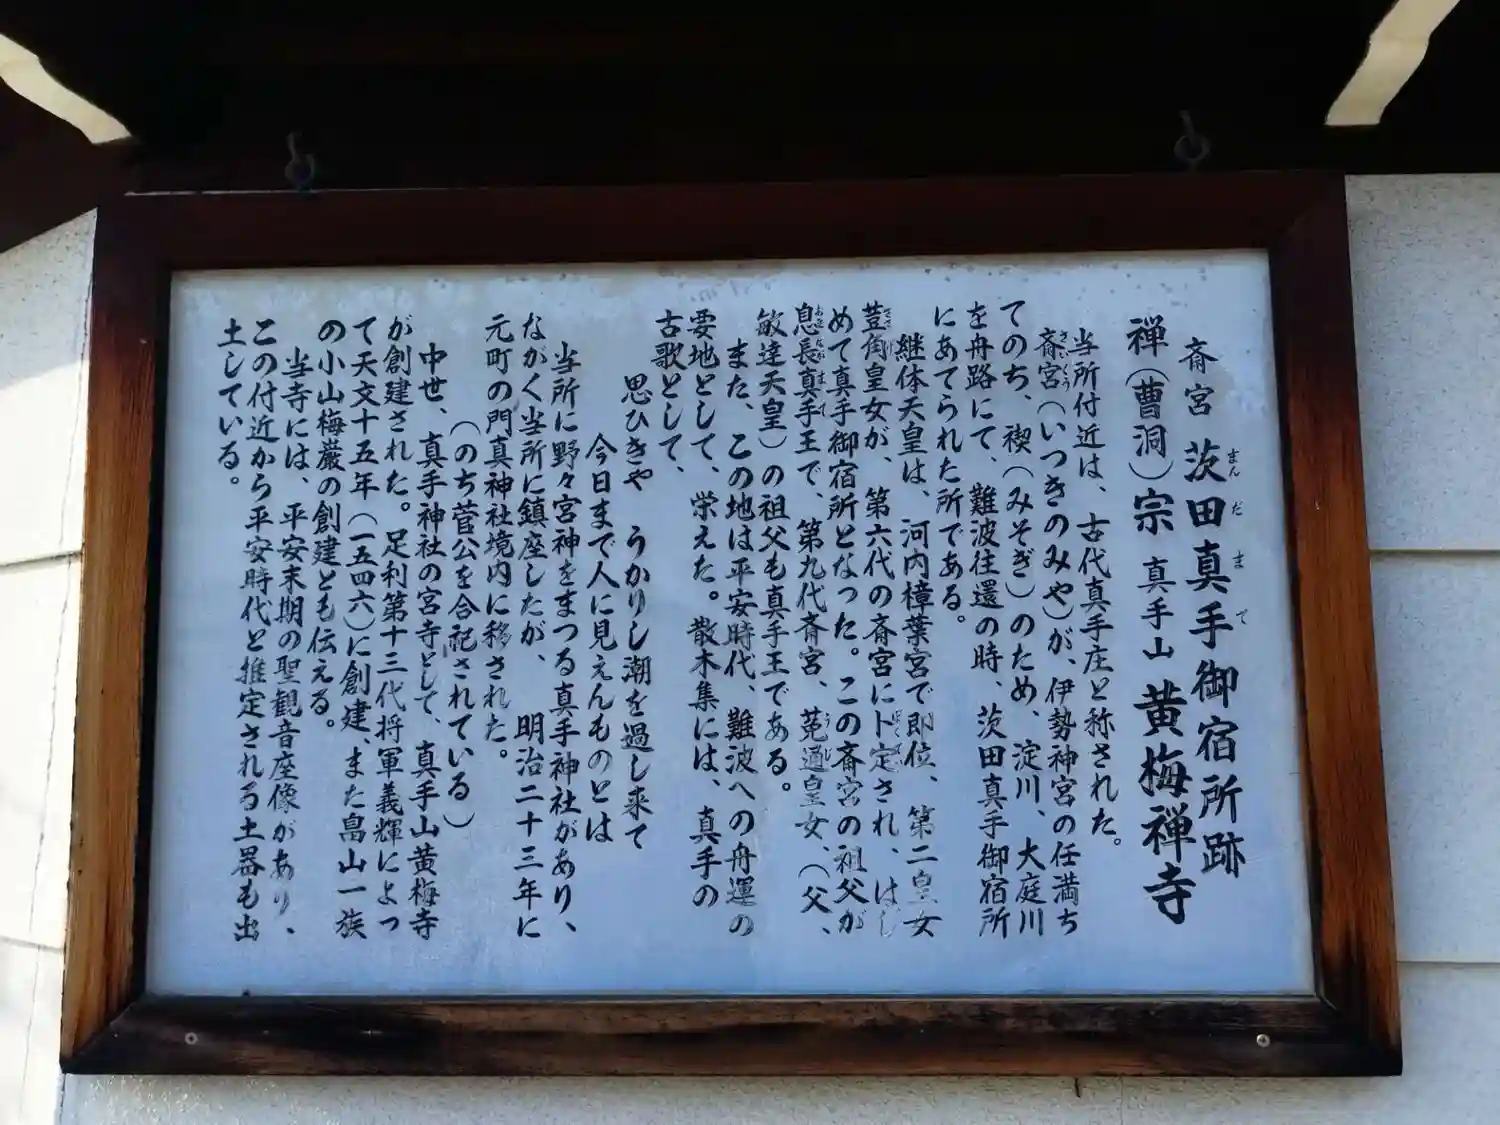 斉宮 茨田真手御宿所跡
禅(曹洞)宗 真手山 黄梅禅寺
当所付近は、古代真手庄と称された。
斎宮(いつきのみや)が、伊勢神宮の任満ち
てのち、禊(みそぎ)のため、淀川、大庭川
を舟路にて、難波往還の時、茨田真手御宿所
にあてられた所である。
継体天皇は、河内樟葉宮で即位、第二皇女
荳角皇女が、第六代の斎宮に卜定され、はじ
めて真手御宿所となった。この斎宮の祖父が
息長真手王で、第九代斉宮、莵道皇女、(父、
敏達天皇)の祖父も真手王である。
また、この地は平安時代、難波への舟運の
要地として、栄えた。散木集には、真手の
古歌として、
思ひきや うかりし潮を過し来て
今日まで人に見えんものとは
当所に野々宮神をまつる真手神社があり、
ながく当所に鎮座したが、明治二十三年に
元町の門真神社境内に移された。
(のち菅公を合祀されている)
中世、真手神社の宮寺として、真手山黄梅寺
が創建された。足利第十三代将軍義輝によっ
て天文十五年(一五四六)に創建、また畠山一族
の小山梅巌の創建とも伝える。
当寺には、平安末期の聖観音座像があり、
この付近から平安時代と推定される土器も出
土している。